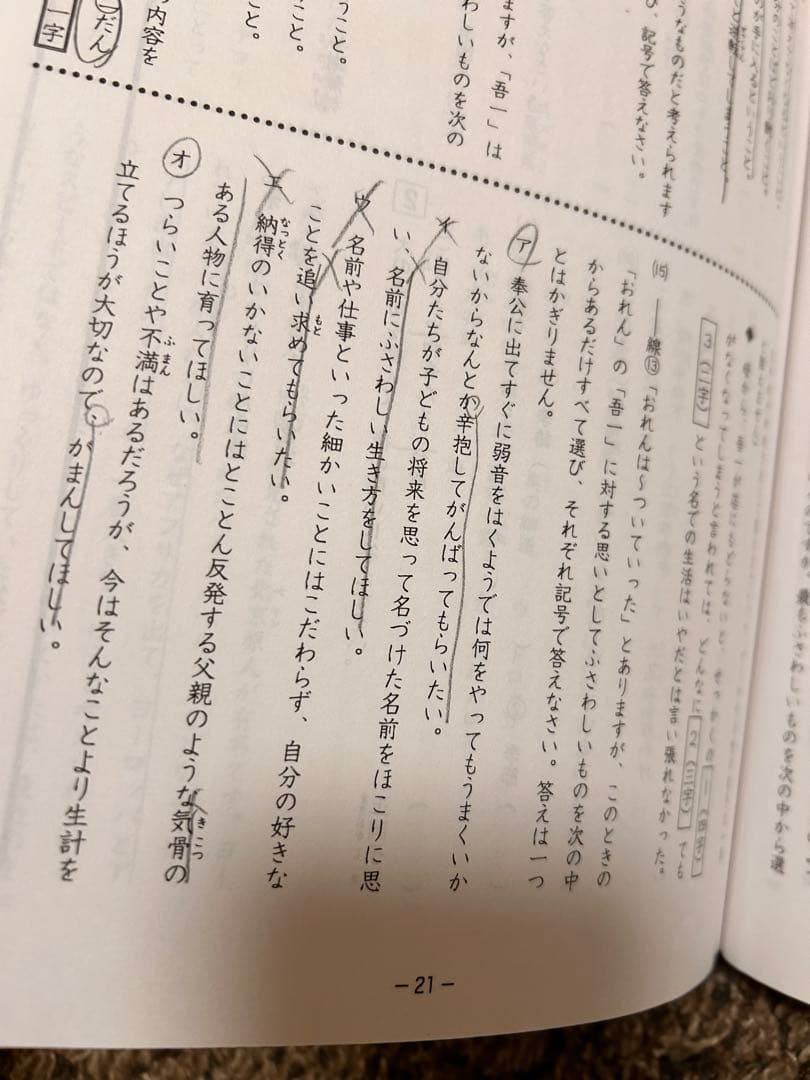 うなものだと考えられます
び、記号で答えなさい。
ますが、「吾一」は
わしいものを次の
うこと。
こと。
と。
内容を
だん
一字
3(二字)という名での生活はいやだとは言い張れなかった。
(15) ――線⑬「おれんは〜ついていった」とありますが、このときの
「おれん」の「吾一」に対する思いとしてふさわしいものを次の中
からあるだけすべて選び、それぞれ記号で答えなさい。答えは一つ
とはかぎりません。
ア 奉公に出てすぐに弱音をはくようでは何をやってもうまくいか
ないからなんとか辛抱してがんばってもらいたい。
イ 自分たちが子どもの将来を思って名づけた名前をほこりに思
い、名前にふさわしい生き方をしてほしい。
ウ 名前や仕事といった細かいことにはこだわらず、自分の好きな
ことを追い求めてもらいたい。
もと
エ 納得のいかないことにはとことん反発する父親のような気骨の
なっとく
きこつ
ある人物に育ってほしい。
オ つらいことや不満はあるだろうが、今はそんなことより生計を
ふまん
立てるほうが大切なので、がまんしてほしい。
ふさわしいものを次の中から選
－21－